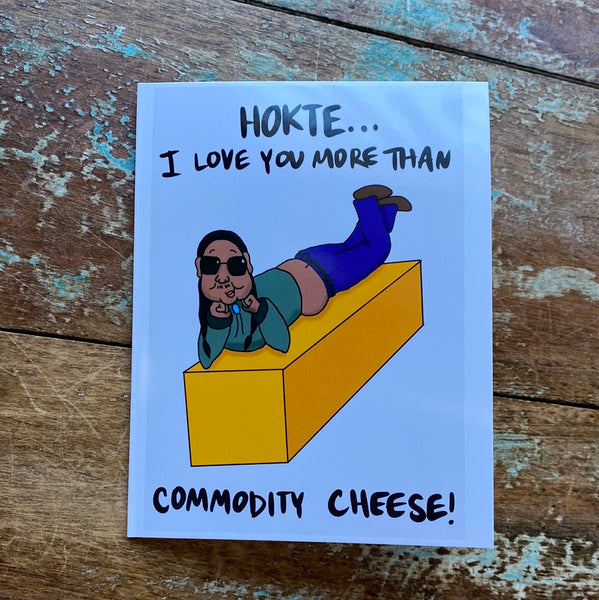 HOKTE...
I LOVE YOU MORE THAN
COMMODITY CHEESE!